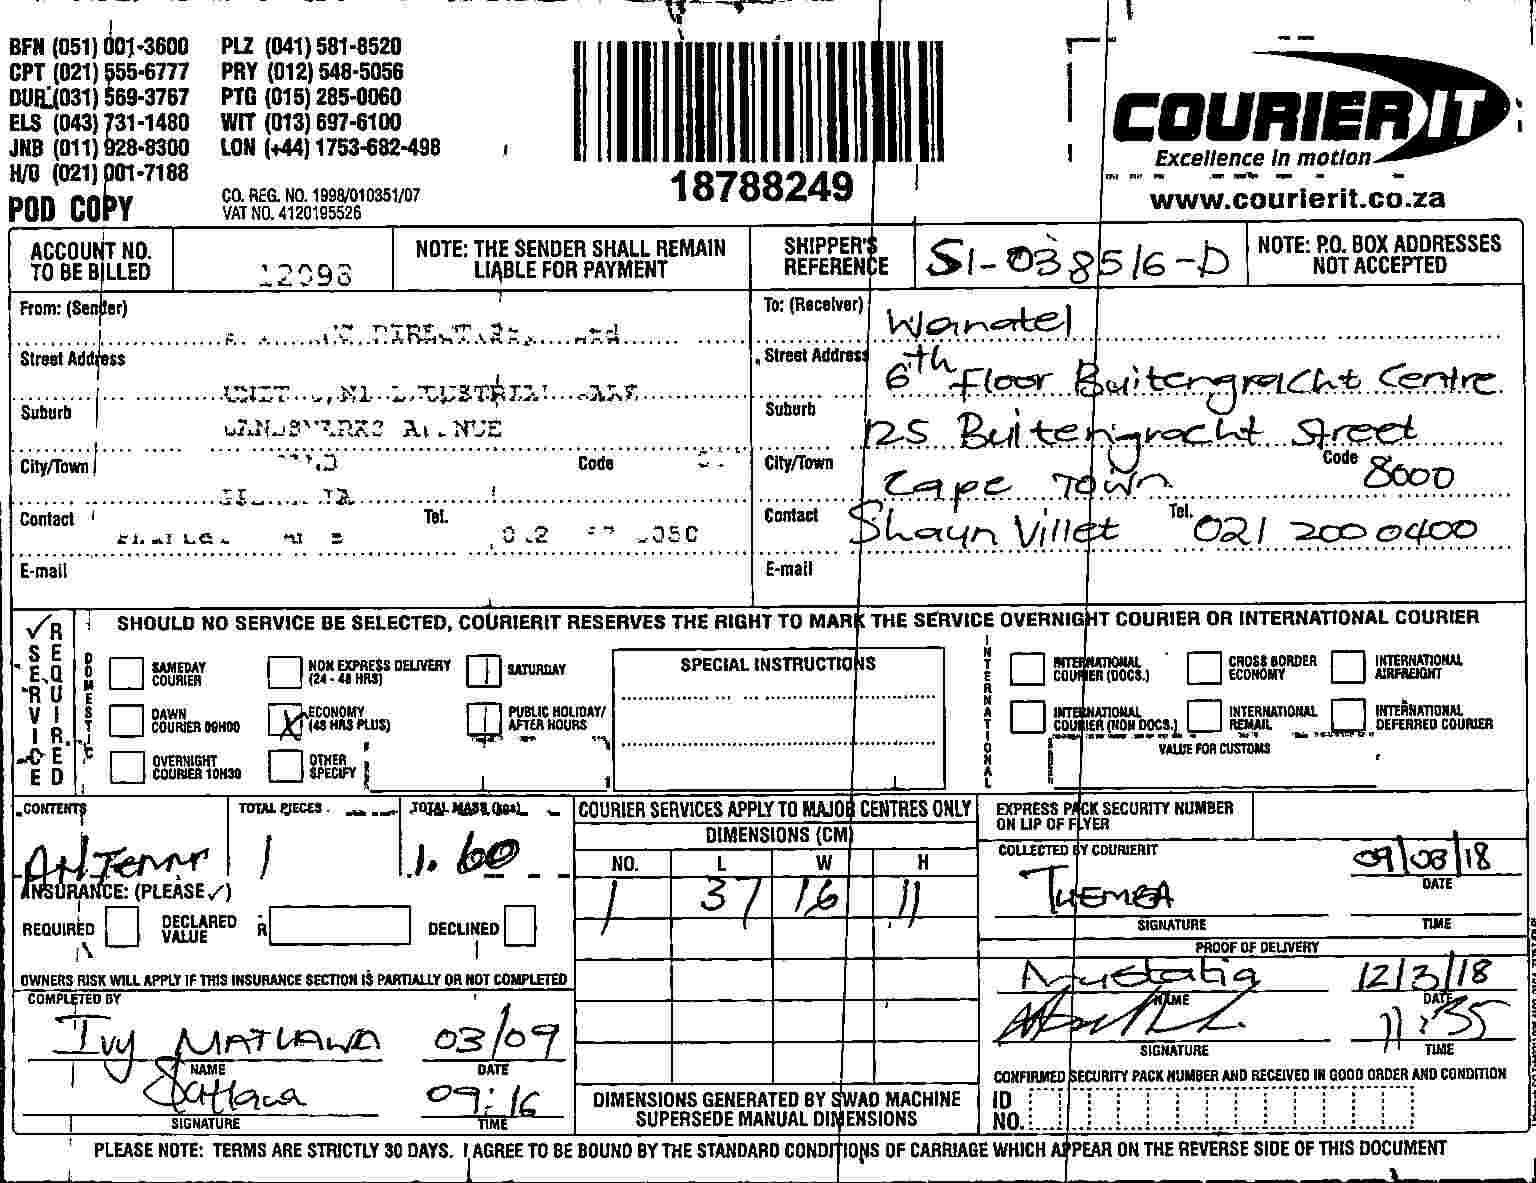 BFN (051) 001-3600 PLZ (041) 581-8520
CPT (021) 555-6777 PRY (012) 548-5056
DUR (031) 569-3767 PTG (015) 285-0060
ELS (043) 731-1480 WIT (013) 697-6100
JNB (011) 928-8300 LON (+44) 1753-682-498
H/O (021) 001-7188
POD COPY
CO. REG. NO. 1998/010351/07
VAT NO. 4120195526
18788249
COURIER IT
Excellence in motion
www.courierit.co.za
ACCOUNT NO. TO BE BILLED
12098
NOTE: THE SENDER SHALL REMAIN LIABLE FOR PAYMENT
SHIPPER'S REFERENCE
SI-038516-D
NOTE: P.O. BOX ADDRESSES NOT ACCEPTED
From: (Sender)
Street Address
Suburb
AVENUE
City/Town
Code
Contact
Tel.
E-mail
To: (Receiver) Wanatel
Street Address 6th Floor Buitengracht Centre
Suburb 125 Buitengracht Street
City/Town Cape Town Code 8000
Contact Shaun Villet Tel. 021 200 0400
E-mail
✓ SERVICE REQUIRED
SHOULD NO SERVICE BE SELECTED, COURIERIT RESERVES THE RIGHT TO MARK THE SERVICE OVERNIGHT COURIER OR INTERNATIONAL COURIER
DOMESTIC
SAMEDAY COURIER
NON EXPRESS DELIVERY (24 - 48 HRS)
SATURDAY
DAWN COURIER 09H00
X ECONOMY (48 HRS PLUS)
PUBLIC HOLIDAY/ AFTER HOURS
OVERNIGHT COURIER 10H30
OTHER SPECIFY
SPECIAL INSTRUCTIONS
INTERNATIONAL
INTERNATIONAL COURIER (DOCS.)
CROSS BORDER ECONOMY
INTERNATIONAL AIRFREIGHT
INTERNATIONAL COURIER (NON DOCS.)
INTERNATIONAL REMAIL
INTERNATIONAL DEFERRED COURIER
VALUE FOR CUSTOMS
CONTENTS
TOTAL PIECES
1
TOTAL MASS (kgs)
1.60
INSURANCE: (PLEASE ✓)
REQUIRED
DECLARED VALUE R
DECLINED
OWNERS RISK WILL APPLY IF THIS INSURANCE SECTION IS PARTIALLY OR NOT COMPLETED
COMPLETED BY
Ivy MATLAWA 03/09
NAME DATE
09:16
SIGNATURE TIME
COURIER SERVICES APPLY TO MAJOR CENTRES ONLY
DIMENSIONS (CM)
NO. L W H
1 37 16 11
DIMENSIONS GENERATED BY SWAD MACHINE
SUPERSEDE MANUAL DIMENSIONS
EXPRESS PACK SECURITY NUMBER
ON LIP OF FLYER
COLLECTED BY COURIERIT
THEMBA
09/03/18
DATE
SIGNATURE TIME
PROOF OF DELIVERY
12/3/18
NAME DATE
11:35
SIGNATURE TIME
CONFIRMED SECURITY PACK NUMBER AND RECEIVED IN GOOD ORDER AND CONDITION
ID NO.
PLEASE NOTE: TERMS ARE STRICTLY 30 DAYS. I AGREE TO BE BOUND BY THE STANDARD CONDITIONS OF CARRIAGE WHICH APPEAR ON THE REVERSE SIDE OF THIS DOCUMENT